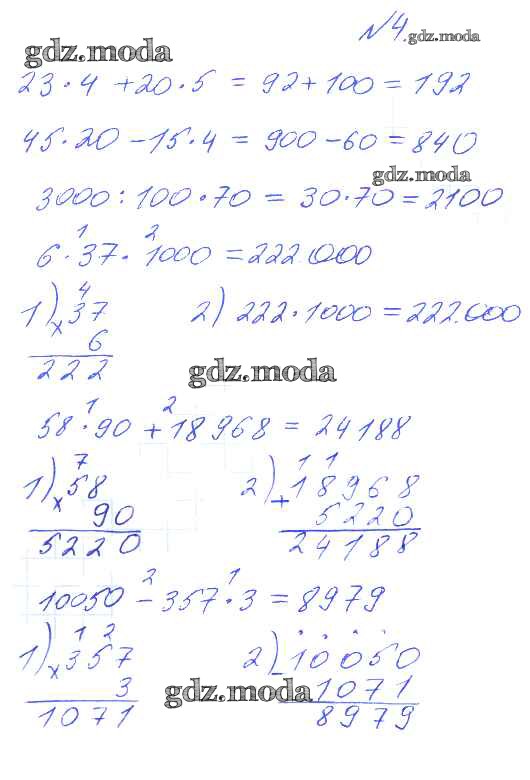 №4. gdz.moda
gdz.moda
23·4 + 20·5 = 92 + 100 = 192
45·20 - 15·4 = 900 - 60 = 840
gdz.moda
3000 : 100·70 = 30·70 = 2100
1 2
6·37·1000 = 222.000
4
1) 37 2) 222·1000 = 222.000
x 6
222
gdz.moda
1 2
58·90 + 18968 = 24188
7 1 1
1) 58 2) 18968
x 90 + 5220
5220 24188
2 1
10050 - 357·3 = 8979
1 2 . . . .
1) 357 2) 10050
x 3 - 1071
1071 8979
gdz.moda